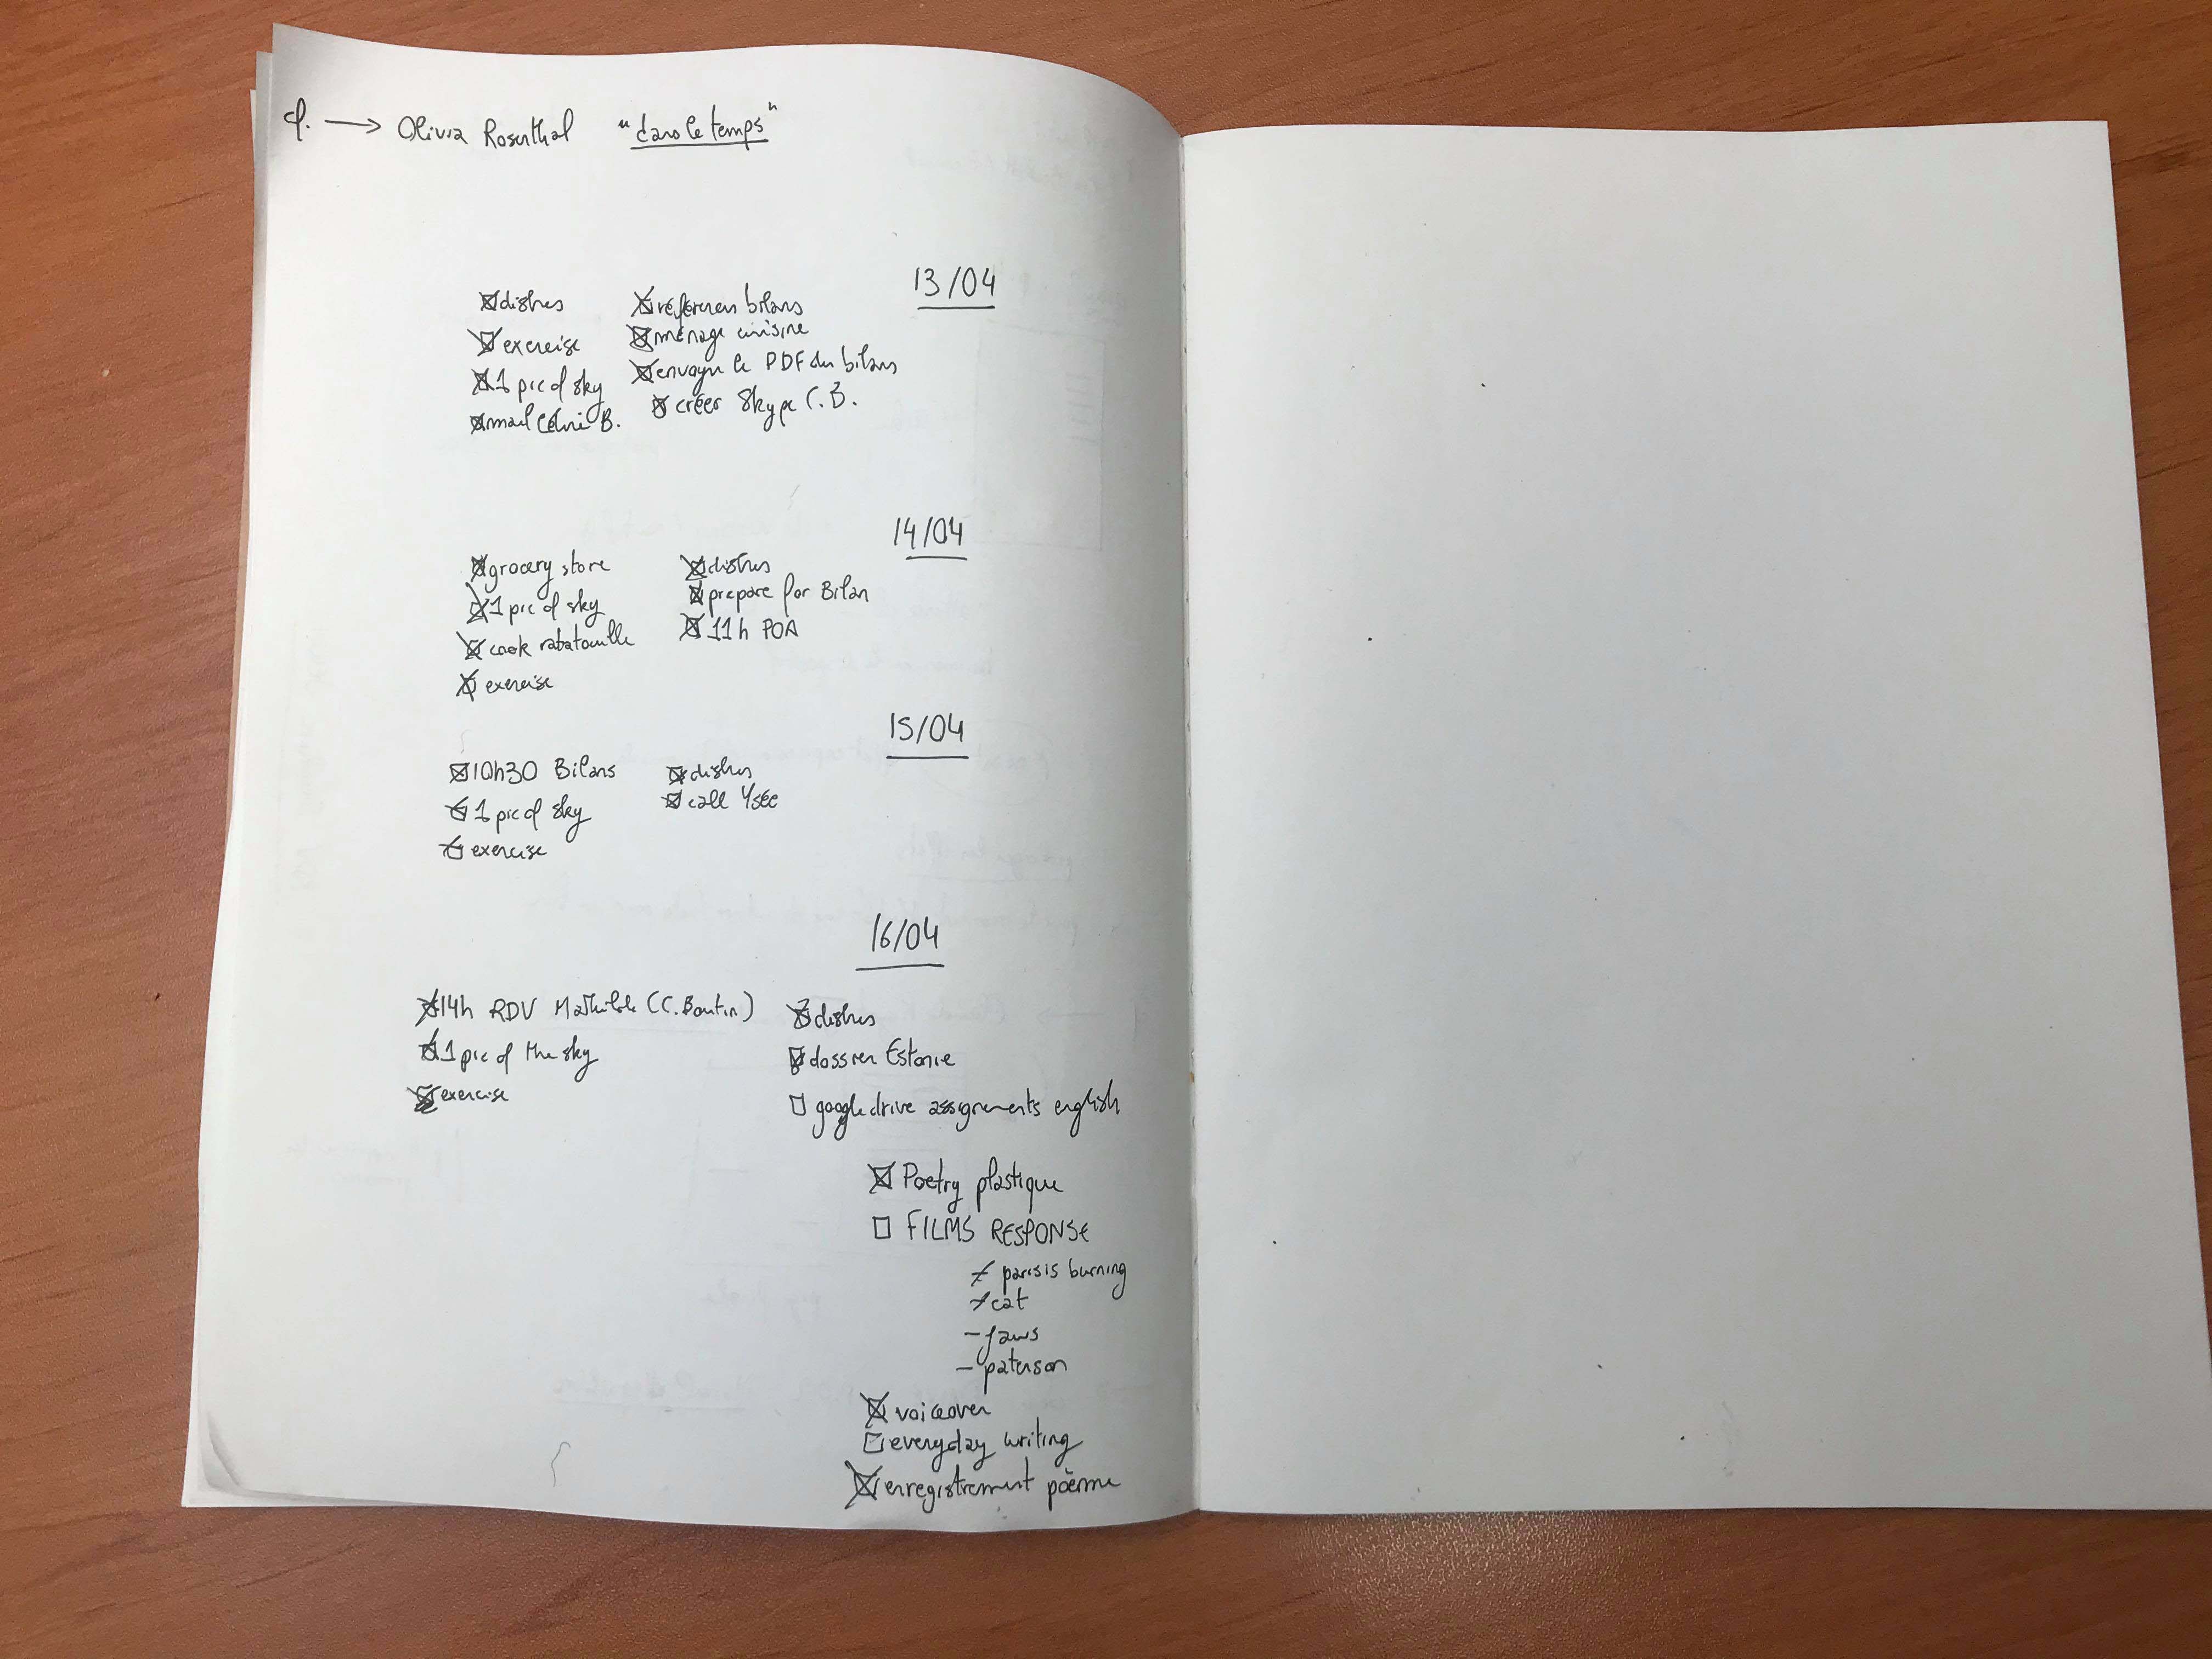 cf. → Olivia Rosenthal "dans le temps"
13/04
dishes
exercise
1 pic of sky
mail Céline B.
référencer bilans
ménage cuisine
envoyer le PDF du bilans
créer Skype C.B.
14/04
grocery store
1 pic of sky
cook ratatouille
exercise
dishes
prepare for Bilan
11h POA
15/04
10h30 Bilans
1 pic of sky
exercise
dishes
call Ysée
16/04
14h RDV Mathilde (C. Boutin)
1 pic of the sky
exercise
dishes
dossier Estonie
google drive assignments english
Poetry plastique
FILMS RESPONSE
paris is burning
cat
- jaws
- paterson
voiceover
everyday writing
enregistrement poème